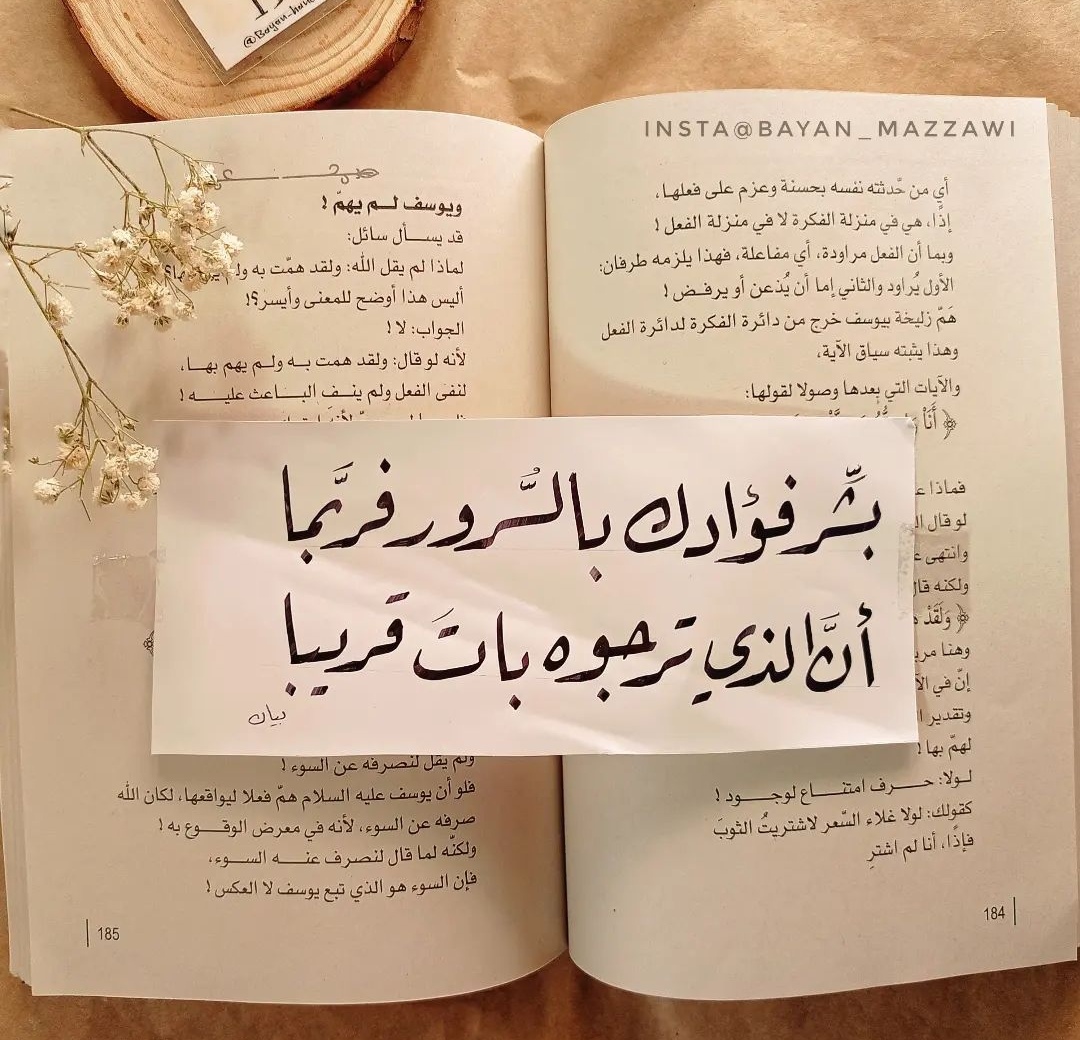 @Bayan_
INSTA@BAYAN_MAZZAWI
أي من حدّثته نفسه بحسنة وعزم على فعلها،
إذًا، هي في منزلة الفكرة لا في منزلة الفعل !
وبما أن الفعل مراودة، أي مفاعلة، فهذا يلزمه طرفان:
الأول يُراود والثاني إما أن يُذعن أو يرفـض !
همّ زليخة بيوسف خرج من دائرة الفكرة لدائرة الفعل
وهذا يثبته سياق الآية،
والآيات التي بعدها وصولا لقولها:
﴿ أَنَا
فماذا
لو قال
وانتهى
ولكنه قال
﴿ وَلَقَدْ
وهنا
إنّ في
وتقدير
لهمّ بها !
لـولا: حـرف امتنـاع لوجـود !
كقولك: لولا غلاء السّعر لاشتريتُ الثوبَ
فإذًا، أنا لم اشترِ
184
ويوسف لـم يهمّ !
قد يسـأل سائل:
لماذا لم يقل الله: ولقد همّت به
أليس هذا أوضح للمعنى وأيسر؟!
الجواب: لا !
لأنه لو قال: ولقد همت بـه ولـم يهم بهـا،
لنفى الفعل ولم ينـف البـاعث عليـه !
بشّر فؤادك بالسُّرور فربَّما
أنَّ الذي ترجوه باتَ قريبا
بيان
ولم يقل لنصرفه عن السوء !
فلو أن يوسف عليه السلام همّ فعلا ليواقعها، لكان الله
صرفه عن السوء، لأنه في معرض الوقـوع به !
ولكنّه لما قال لنصرف عنـه السـوء،
فإن السوء هو الذي تبع يوسف لا العكس !
185